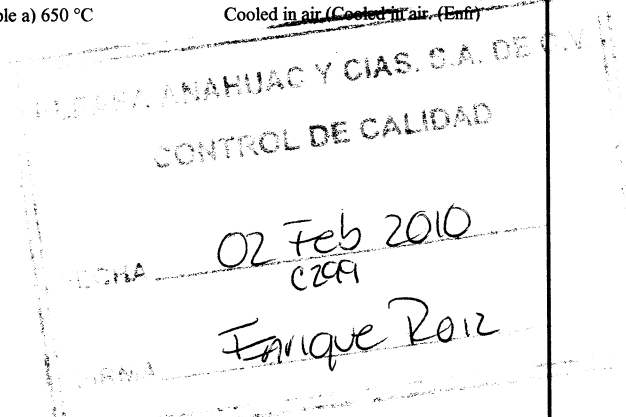 ble a) 650 °C Cooled in air.(Cooled in air. (Enfr)
ANAHUAC Y CIAS. S.A. DE C.V
CONTROL DE CALIDAD
02 Feb 2010
FECHA
C299
Enrique Roiz
FIRMA